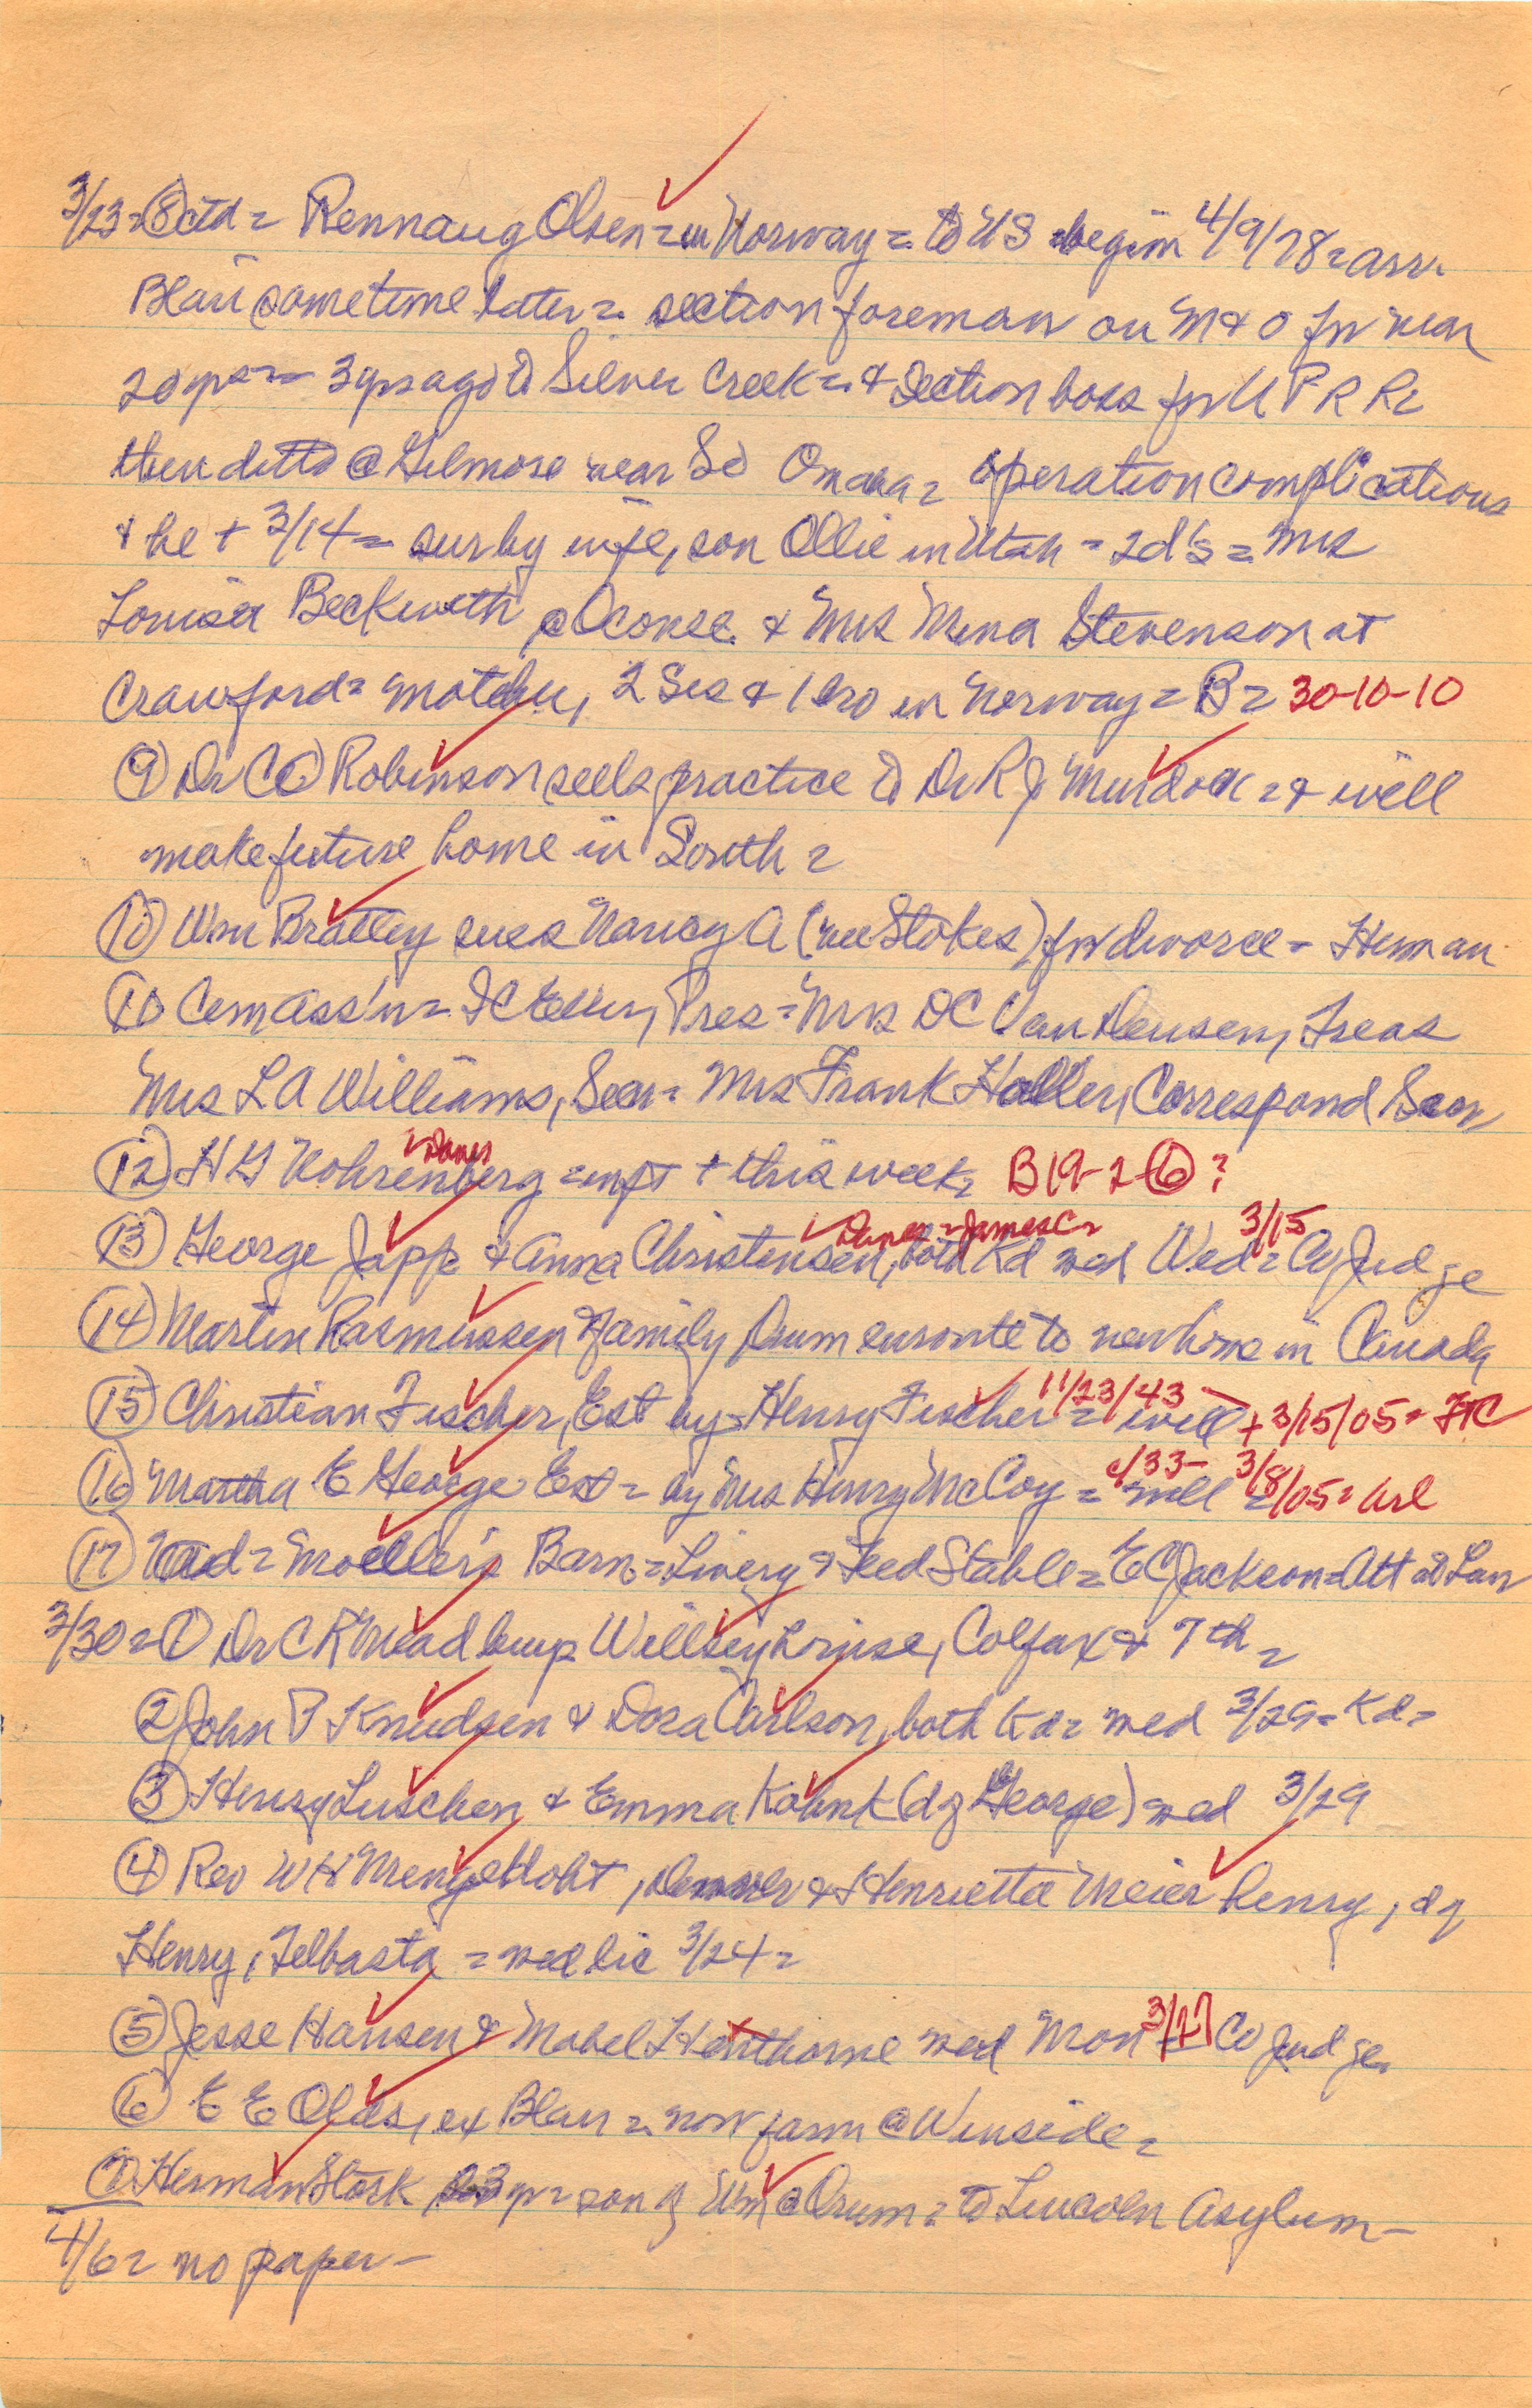 3/23 = (8) ctd = Rennaug Olsen = in Norway = to US begin 4/9/78 = arr.
Blair sometime later = section foreman on M & O for near
20 yrs = 3 yrs ago to Silver Creek = & section boss for U P R R
then ditto @ Gilmore near So Omaha = operation complications
& he + 3/14 = sur by wife, son Ollie in Utah = 2 d's = Mrs
Louisa Beckwith @ & Mrs Mina Stevenson at
Crawford = mother, 2 Sis & 1 bro in Norway = B = 30-10-10
(9) Dr C Robinson sells practice to Dr R J Murdock = & will
make future home in South =
(10) Wm Bratley sues Nancy A (nee Stokes) for divorce = Herman
(11) Cem Ass'n = I C Eller, Pres = Mrs D C Van Deusen, Treas
Mrs L A Williams, Secr = Mrs Frank Haller, Correspond Secr
(12) H G Nohrenberg = inft + this week = B 19-2-(6)?
(13) George Japp & Anna Christensen, both Kd wed Wed 3/15 = Co Judge
(14) Martin Rasmussen & family Orum enroute to new home in Canada
(15) Christian Fischer, Est by = Henry Fischer = 11/23/43 - will + 3/15/05 = FtC
(16) Martha E George Est = by Mrs Henry McCoy = c/33 - will = 3/8/05 = Arl
(17) ad = Moeller's Barn = Livery & Feed Stable = E C Jackson = Att at Law
3/30 = (1) Dr C R Mead buys Willsey house, Colfax & 7th =
(2) John P Knudsen & Dora Carlson, both Kd = wed 3/29 = Kd =
(3) Henry Luschen & Emma Kohnk (dg George) wed 3/29
(4) Rev W H Mengeldoht, & Henrietta Meier henry, dg
Henry, Telbasta = wed lic 3/24 =
(5) Jesse Hansen & Mabel Henthorne wed Mon 3/27 Co Judge
(6) E E Olds, ex Blair = now farm @ Winside =
(7) Herman Stork 23 yr = son of Wm @ Orum = to Lincoln Asylum -
4/6 = no paper -